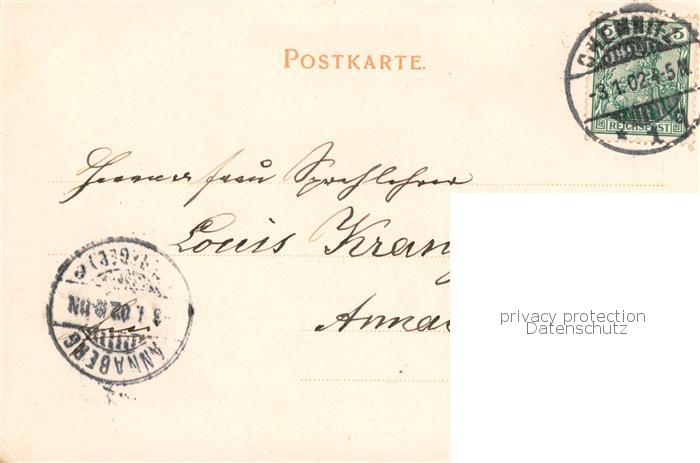 POSTKARTE.
CHEMNITZ
-3.1.02.4-5N.
* 1
5
REICHSPOST
Herrn u Frau Sprachlehrer
Louis Kranz
Anna
privacy protection
Datenschutz
3.1.02
ANNABERG